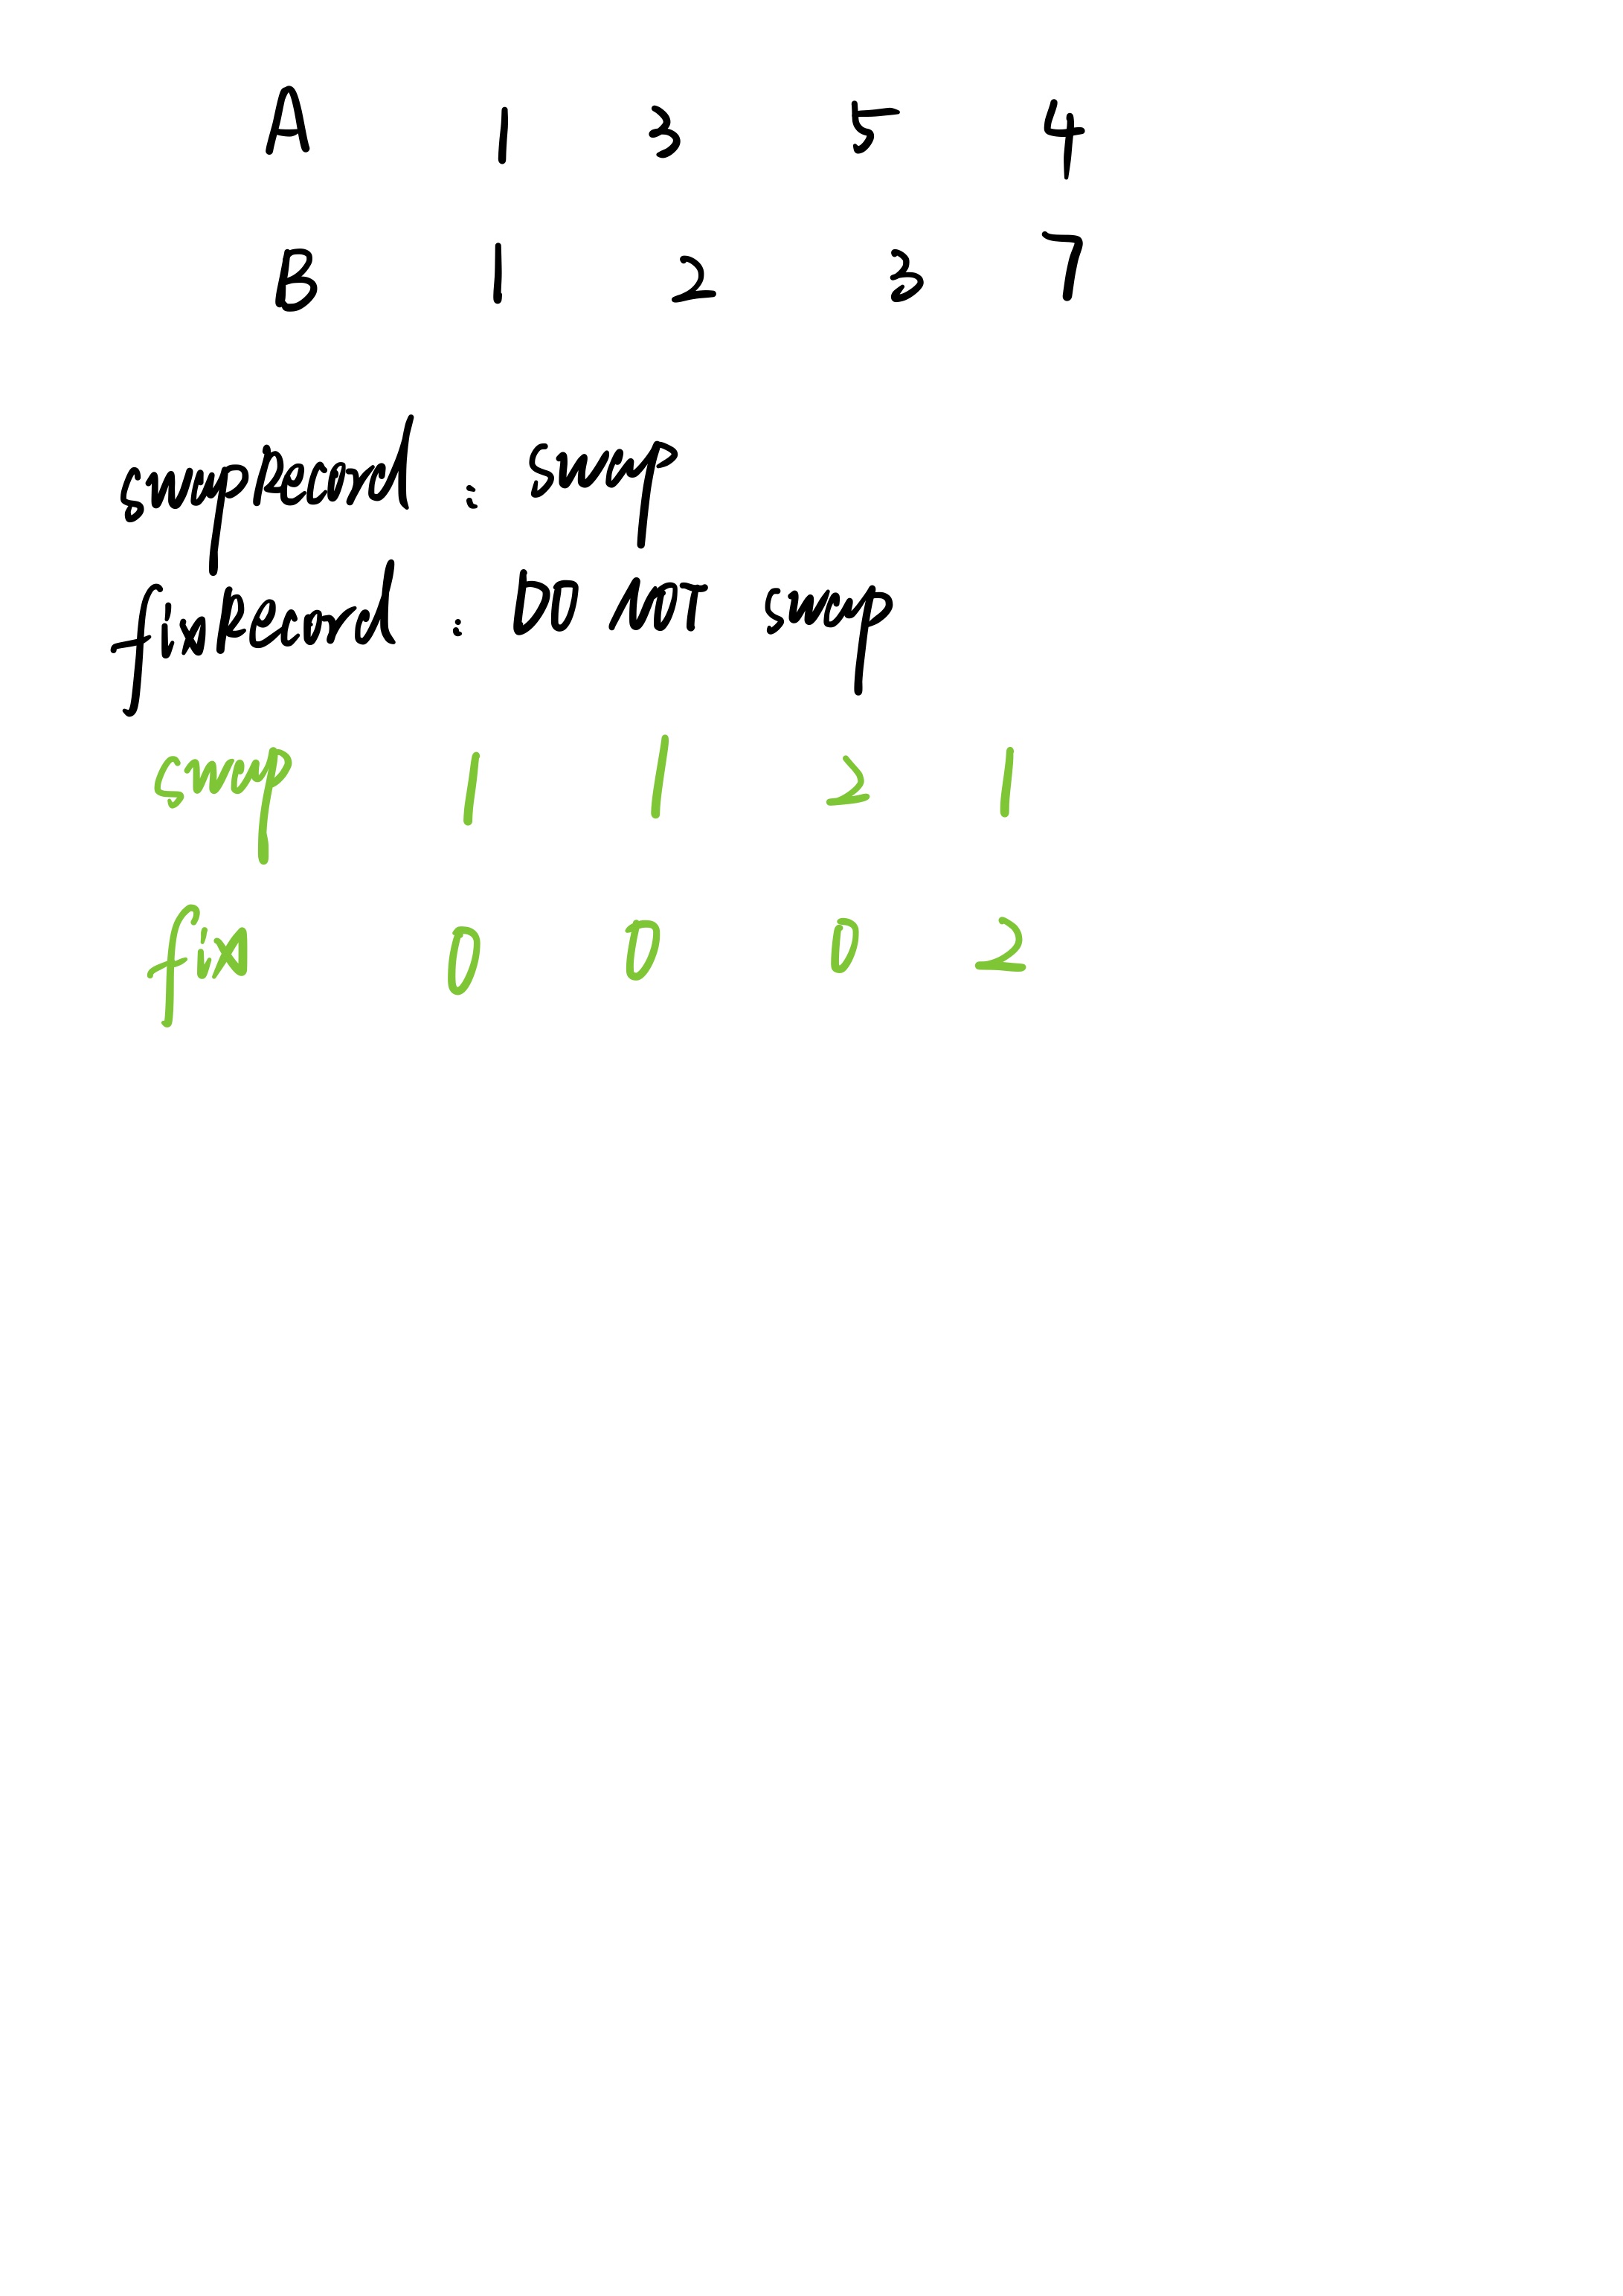 A 1 3 5 4
B 1 2 3 7
swapRecord : swap
fixRecord : DO NOT swap
swap 1 1 2 1
fix 0 0 0 2